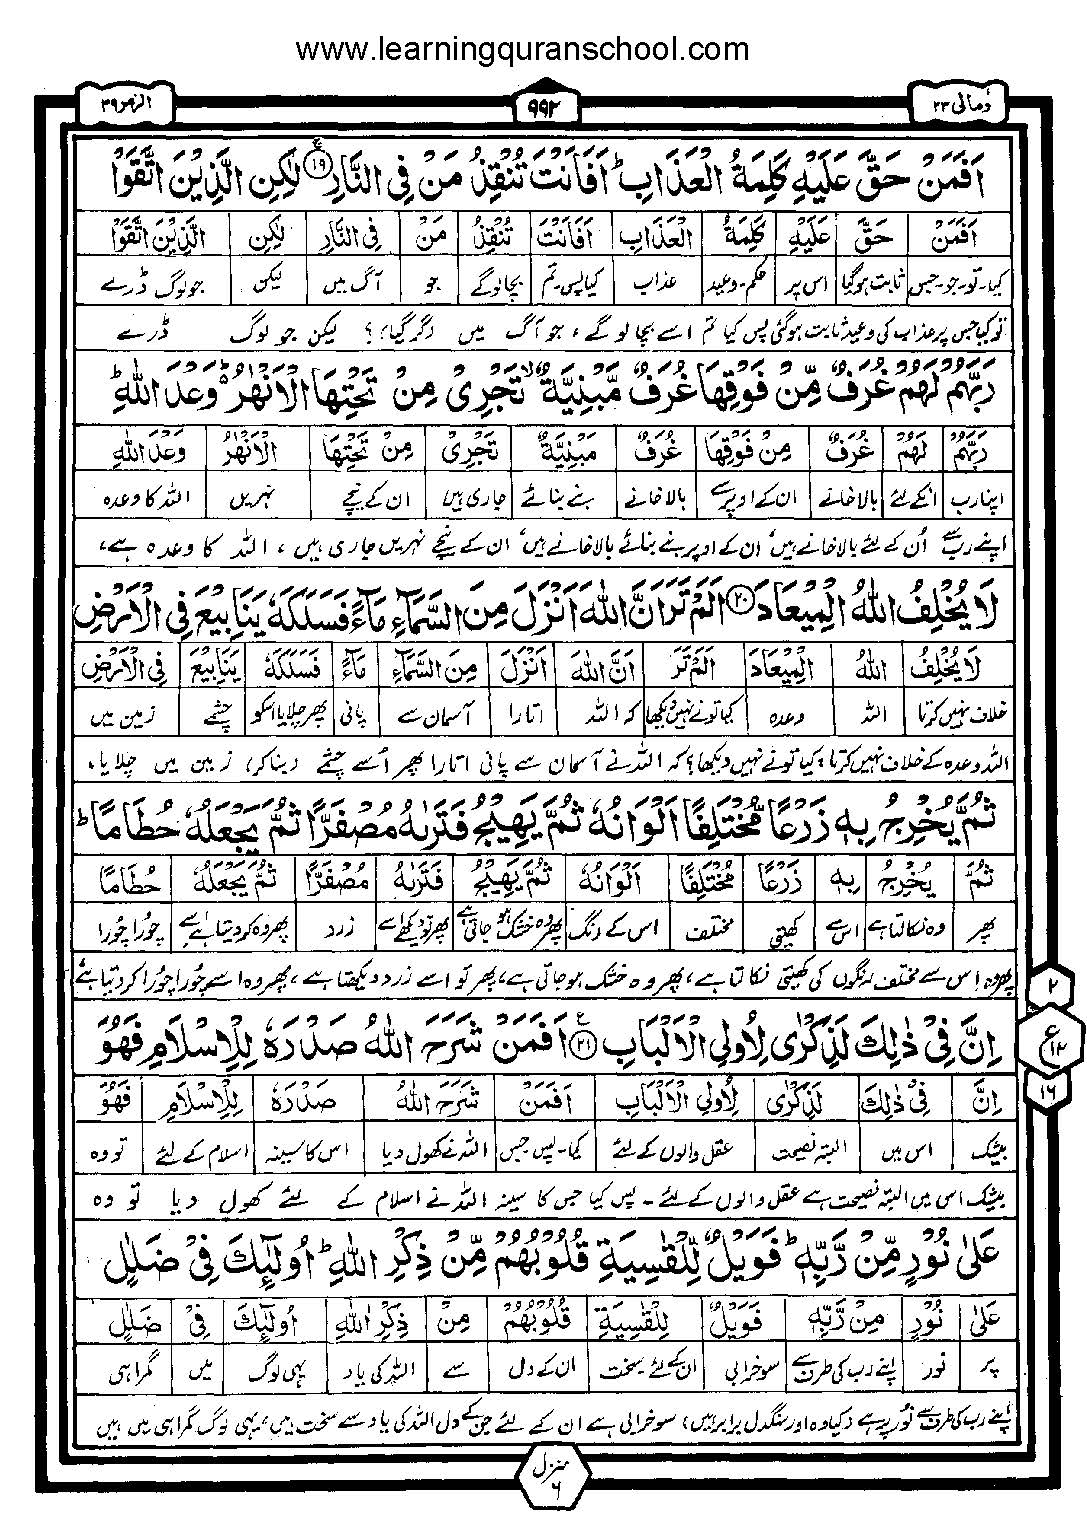 www.learningquranschool.com
الزمر ٣٩
٩٩٢
ومالی ٢٣
اَفَمَنْ حَقَّ عَلَيْهِ كَلِمَةُ الْعَذَابِ ؕ اَفَاَنْتَ تُنْقِذُ مَنْ فِى النَّارِ ۚ‏ ١٩ لٰكِنِ الَّذِيْنَ اتَّقَوْا
اَفَمَنْ حَقَّ عَلَيْهِ كَلِمَةُ الْعَذَابِ اَفَاَنْتَ تُنْقِذُ مَنْ فِى النَّارِ لٰكِنِ الَّذِيْنَ اتَّقَوْا
کیا۔تو۔جو۔جس ثابت ہوگیا اس پر حکم۔وعید عذاب کیا پس۔تم بچا لوگے جو آگ میں لیکن جو لوگ ڈرے
تو کیا جس پر عذاب کی وعید ثابت ہوگئی پس کیا تم اسے بچا لو گے، جو آگ میں (گر گیا)؟ لیکن جو لوگ ڈرے
رَبَّهُمْ لَهُمْ غُرَفٌ مِّنْ فَوْقِهَا غُرَفٌ مَّبْنِيَّةٌ ۙ تَجْرِىْ مِنْ تَحْتِهَا الْاَنْهٰرُ ؕ وَعْدَ اللّٰهِ ؕ
رَبَّهُمْ لَهُمْ غُرَفٌ مِنْ فَوْقِهَا غُرَفٌ مَبْنِيَّةٌ تَجْرِىْ مِنْ تَحْتِهَا الْاَنْهٰرُ وَعْدَ اللّٰهِ
اپنا رب انکے لئے بالاخانے ان کے اوپر سے بالاخانے بنے بنائے جاری ہیں ان کے نیچے نہریں اللہ کا وعدہ
اپنے رب سے اُن کے لئے بالاخانے ہیں، ان کے اوپر بنے بنائے بالاخانے ہیں، ان کے نیچے نہریں جاری ہیں، اللہ کا وعدہ ہے،
لَا يُخْلِفُ اللّٰهُ الْمِيْعَادَ ٢٠ اَلَمْ تَرَ اَنَّ اللّٰهَ اَنْزَلَ مِنَ السَّمَآءِ مَآءً فَسَلَكَهٗ يَنَابِيْعَ فِى الْاَرْضِ
لَا يُخْلِفُ اللّٰهُ الْمِيْعَادَ اَلَمْ تَرَ اَنَّ اللّٰهَ اَنْزَلَ مِنَ السَّمَآءِ مَآءً فَسَلَكَهٗ يَنَابِيْعَ فِى الْاَرْضِ
خلاف نہیں کرتا اللہ وعدہ کیا تونے نہیں دیکھا کہ اللہ اتارا آسمان سے پانی پھر چلایا اسکو چشمے زمین میں
اللہ وعدہ کے خلاف نہیں کرتا، کیا تونے نہیں دیکھا؟ کہ اللہ نے آسمان سے پانی اتارا پھر اُسے چشمے (بناکر) زمین میں چلایا،
ثُمَّ يُخْرِجُ بِهٖ زَرْعًا مُّخْتَلِفًا اَلْوَانُهٗ ثُمَّ يَهِيْجُ فَتَرٰىهُ مُصْفَرًّا ثُمَّ يَجْعَلُهٗ حُطَامًا ؕ
ثُمَّ يُخْرِجُ بِهٖ زَرْعًا مُخْتَلِفًا اَلْوَانُهٗ ثُمَّ يَهِيْجُ فَتَرٰىهُ مُصْفَرًّا ثُمَّ يَجْعَلُهٗ حُطَامًا
پھر وہ نکالتا ہے اس سے کھیتی مختلف اس کے رنگ پھر وہ خشک ہو جاتی ہے پھر تو دیکھے اسے زرد پھر وہ کر دیتا ہے اسے چُورا چُورا
پھر وہ اس سے مختلف رنگوں کی کھیتی نکالتا ہے، پھر وہ خشک ہو جاتی ہے، پھر تو اسے زرد دیکھتا ہے، پھر وہ اسے چُورا چُورا کر دیتا ہے،
٢
ع
١٢
١٦
اِنَّ فِىْ ذٰلِكَ لَذِكْرٰى لِاُولِى الْاَلْبَابِ ٢١ اَفَمَنْ شَرَحَ اللّٰهُ صَدْرَهٗ لِلْاِسْلَامِ فَهُوَ
اِنَّ فِىْ ذٰلِكَ لَذِكْرٰى لِاُولِى الْاَلْبَابِ اَفَمَنْ شَرَحَ اللّٰهُ صَدْرَهٗ لِلْاِسْلَامِ فَهُوَ
بیشک اس میں البتہ نصیحت عقل والوں کے لئے کیا۔پس جس اللہ نے کھول دیا اس کا سینہ اسلام کے لئے تو وہ
بیشک اس میں البتہ نصیحت ہے عقل والوں کے لئے۔ پس کیا جس کا سینہ اللہ نے اسلام کے لئے کھول دیا تو وہ
عَلٰى نُوْرٍ مِّنْ رَّبِّهٖ ؕ فَوَيْلٌ لِّلْقٰسِيَةِ قُلُوْبُهُمْ مِّنْ ذِكْرِ اللّٰهِ ؕ اُولٰٓئِكَ فِىْ ضَلٰلٍ
عَلٰى نُوْرٍ مِنْ رَّبِّهٖ فَوَيْلٌ لِلْقٰسِيَةِ قُلُوْبُهُمْ مِنْ ذِكْرِ اللّٰهِ اُولٰٓئِكَ فِىْ ضَلٰلٍ
پر نور اپنے رب کی طرف سے سو خرابی ان کے لئے سخت ان کے دل سے اللہ کی یاد یہی لوگ میں گمراہی
اپنے رب کی طرف سے نُور پر ہے (کیا وہ اور سنگدل برابر ہیں) سو خرابی ہے ان کے لئے جن کے دل اللہ کی یاد سے سخت ہیں، یہی لوگ گمراہی میں ہیں
منزل ٦